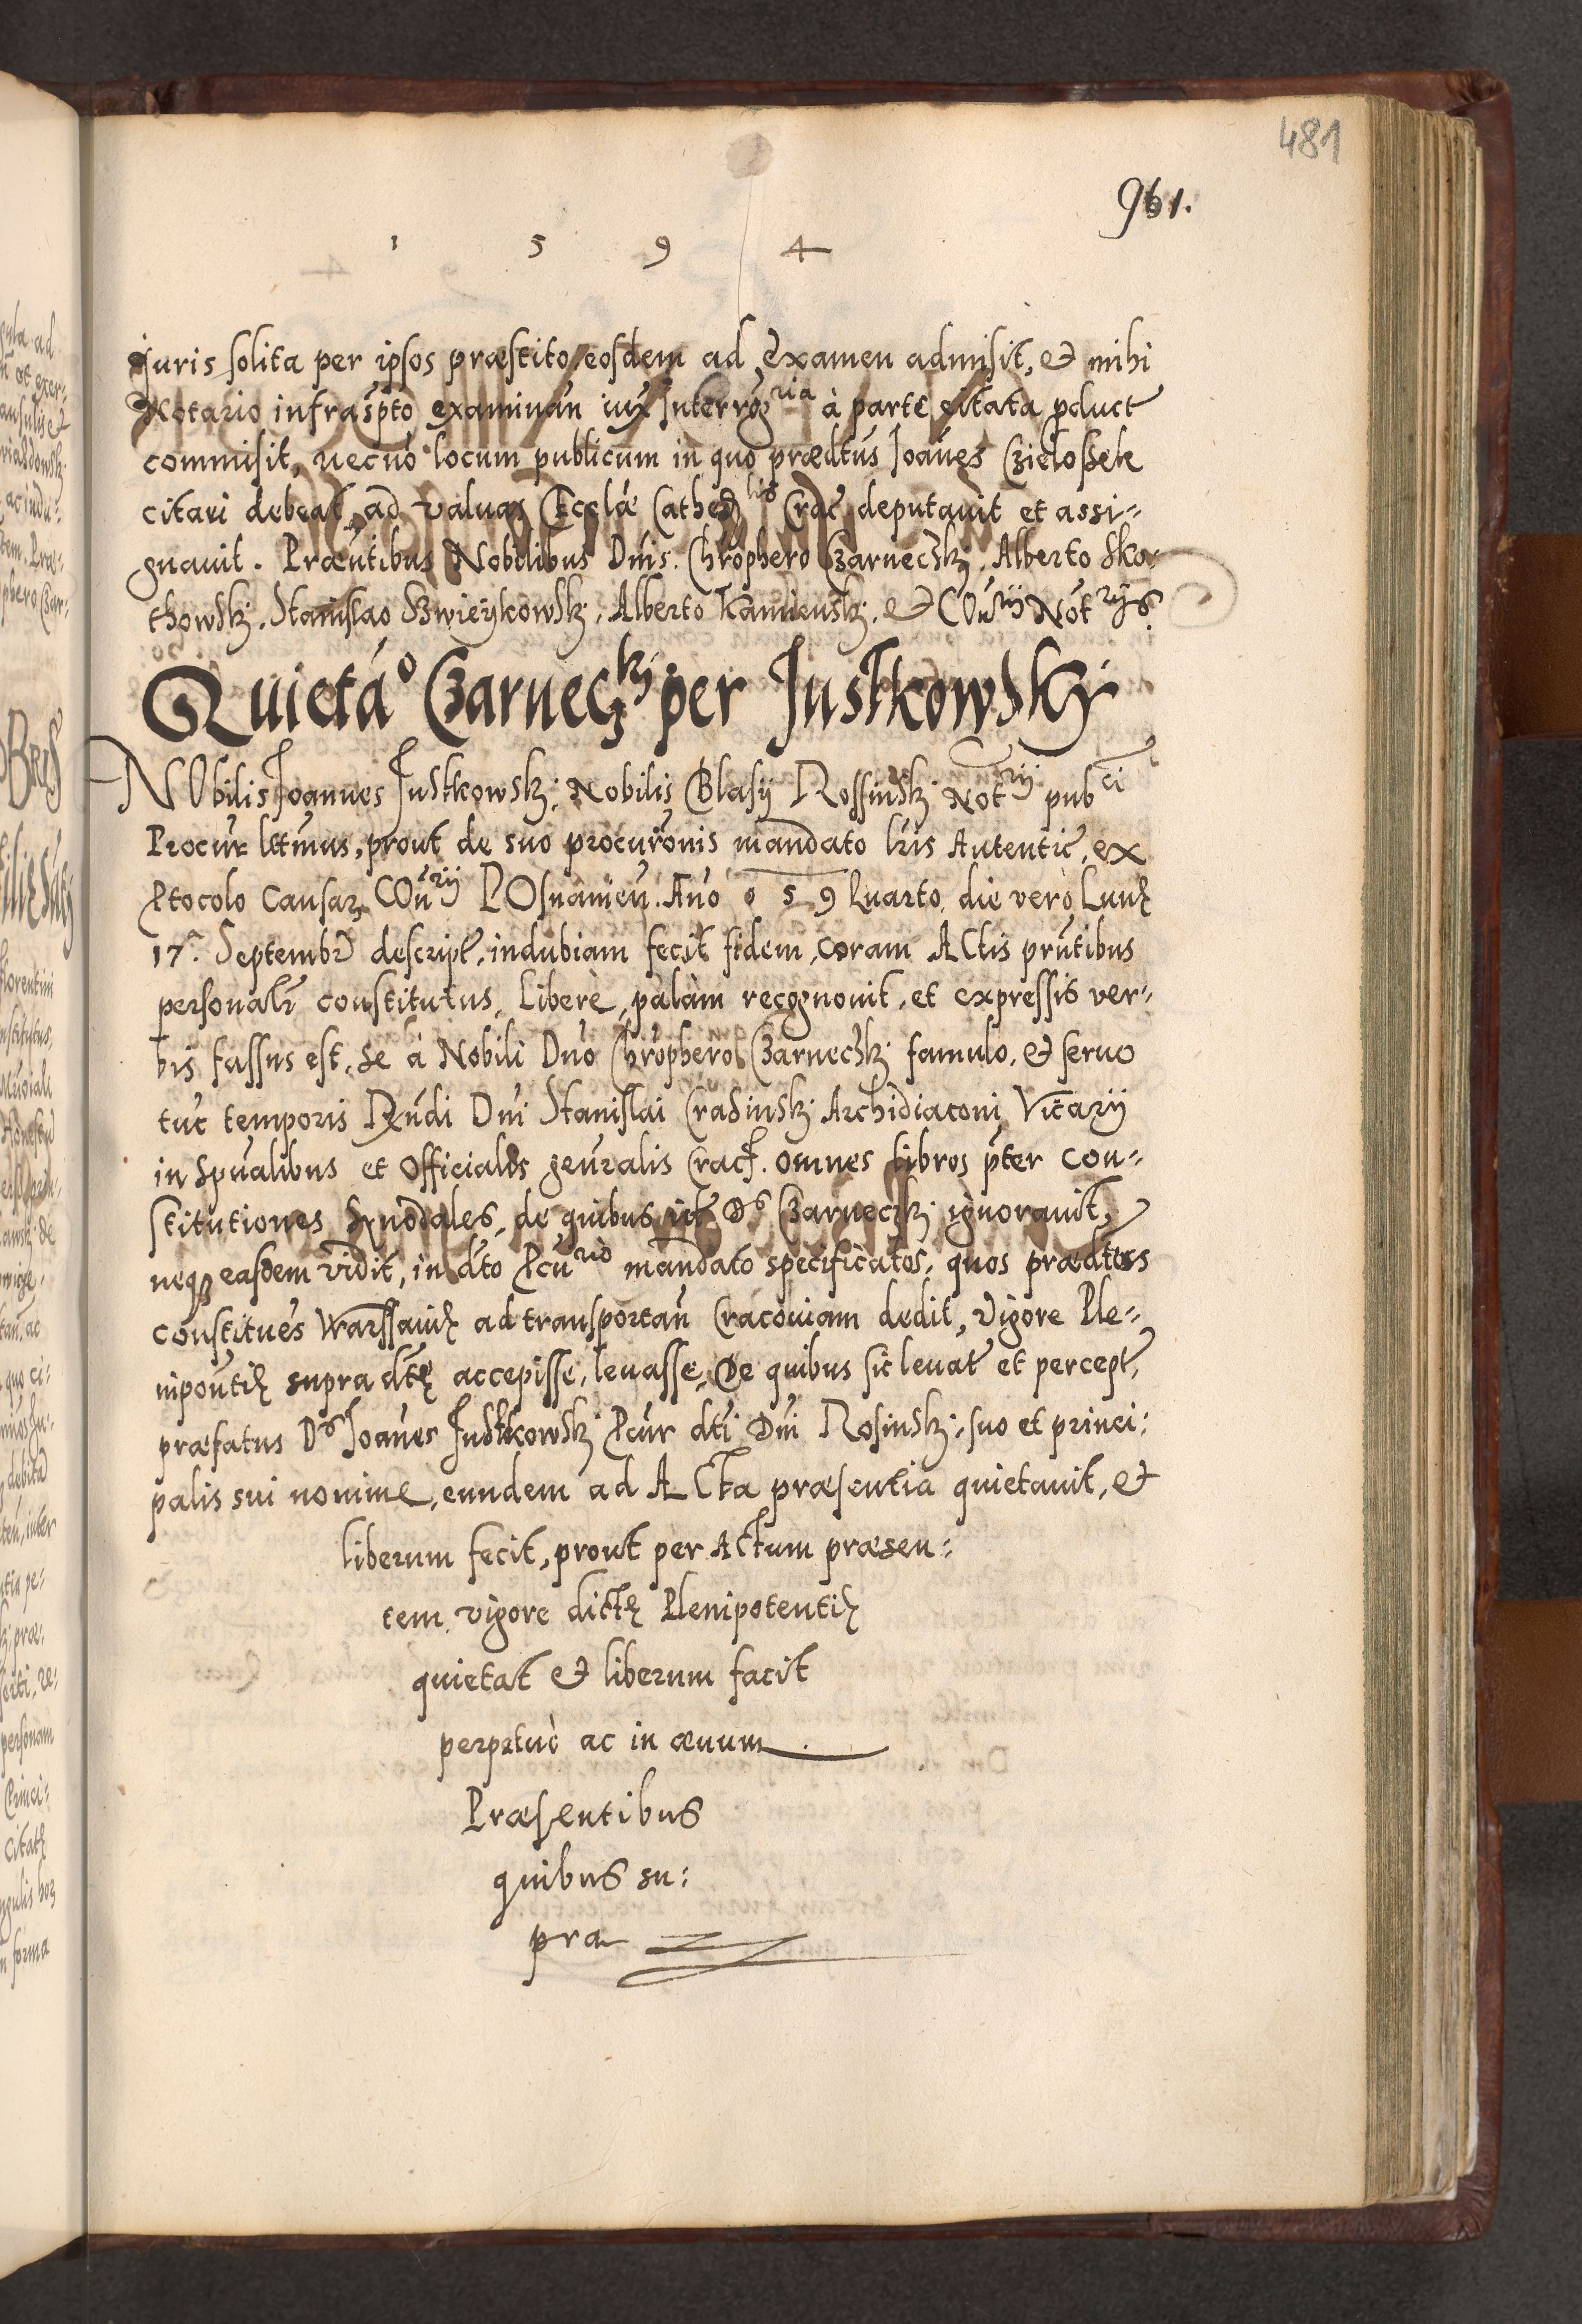 481
961.
1 5 9 4
Juris solita per ipsos præstito, eosdem ad examen admisit, et mihi
Notario infrasp̄to examinan̄ iux̄ Interrog̃ria à parte citata ꝓduct
commisit, necnō locum publicum in quo prædtūs Joañes Czielossek
citari debeat, ad valvas Eccl̄æ Cathed̄lis Crac̄ deputavit et assi-
gnavit. Præn̄tibus Nobilibus Dnīs. Chrōphero Czarneczkj, Alberto Sko-
thowskj, Stanislao Bzwieykowskj, Alberto Kamienskj, et Con̄rij Not̄rijs.
Quietāo Czarneczkj per Justkowsky
NObilis Joannes Justkowskj, Nobilis Blasij Rossinskj Not̄rij pubci
Procur̄ letm̄us, prout de suo procurōnis mandato lrīs Autentic̄, ex
Ꝓtocolo Causaꝝ COn̄rij POsnanien̄. Año 1 5 9 Quarto, die verò Lunę
17ᵃ. Septembr̄ descript, indubiam fecit fidem, coram ACtis prn̄tibus
personalr̄ constitutus, Liberè, palàm recognovit, et expressis ver-
bis fassus est, se à Nobili Dnō Chrōphero Czarneczkj famulo, et servo
tuc̄ temporis Rn̄di Dnī Stanislai Crasinskj Archidiaconi, Vicarij
in Spūalibus et Officialis gen̄ralis Crac̄. omnes libros p̄ter con-
stitutiones Synodales, de quibus id Ds Czarneczkj ignoravit,
neqꝫ easdem vidit, in dto Ꝓcūrio mandato specificatos, quos prædtus
constituēs Warssavię ad transportan̄ Cracoviam dedit, Vigore Ple-
nipon̄tię supra dtę accepisse, levasse, De quibus sic levat et percept,
præfatus Ds Joañes Justkowskj Ꝓcur̄ dti Dnī Rosinskj, suo et princi-
palis sui nomine, eundem ad ACta præsentia quietavit, et
liberum fecit, prout per ACtum præsen-
tem, vigore dictę Plenipotentię
quietat et liberum facit
perpetuò ac in ævum
Præsentibus
quibus su-
pra